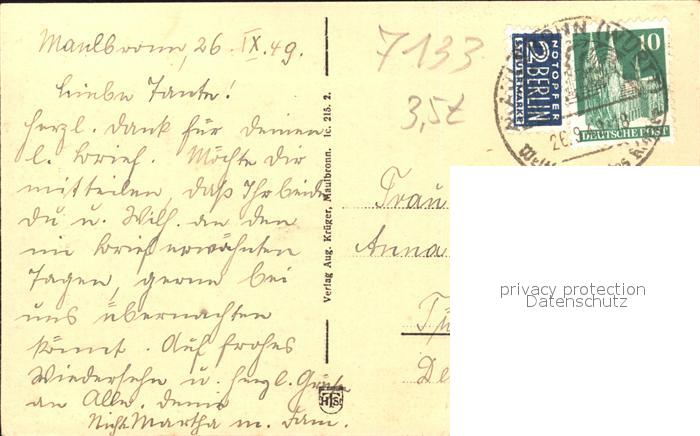 Maulbronn, 26. IX. 49.
Liebe Tante!
Herzl. Dank für Deinen
l. Brief. Möchte Dir
mitteilen, daß Ihr beide
Du u. Wilh. an den
im Brief erwähnten
Tagen, gerne bei
uns übernachten
könnt. Auf frohes
Wiedersehn u. herzl. Grüße
an Alle. Deine
Nichte Martha m. Fam.
Verlag Aug. Krüger, Maulbronn. Ic. 215. 2.
7133
3,5
NOTOPFER
2 BERLIN
STEUERMARKE
10
DEUTSCHE POST
MAULBRONN
26.9.
Frau
Anna
privacy protection
Datenschutz